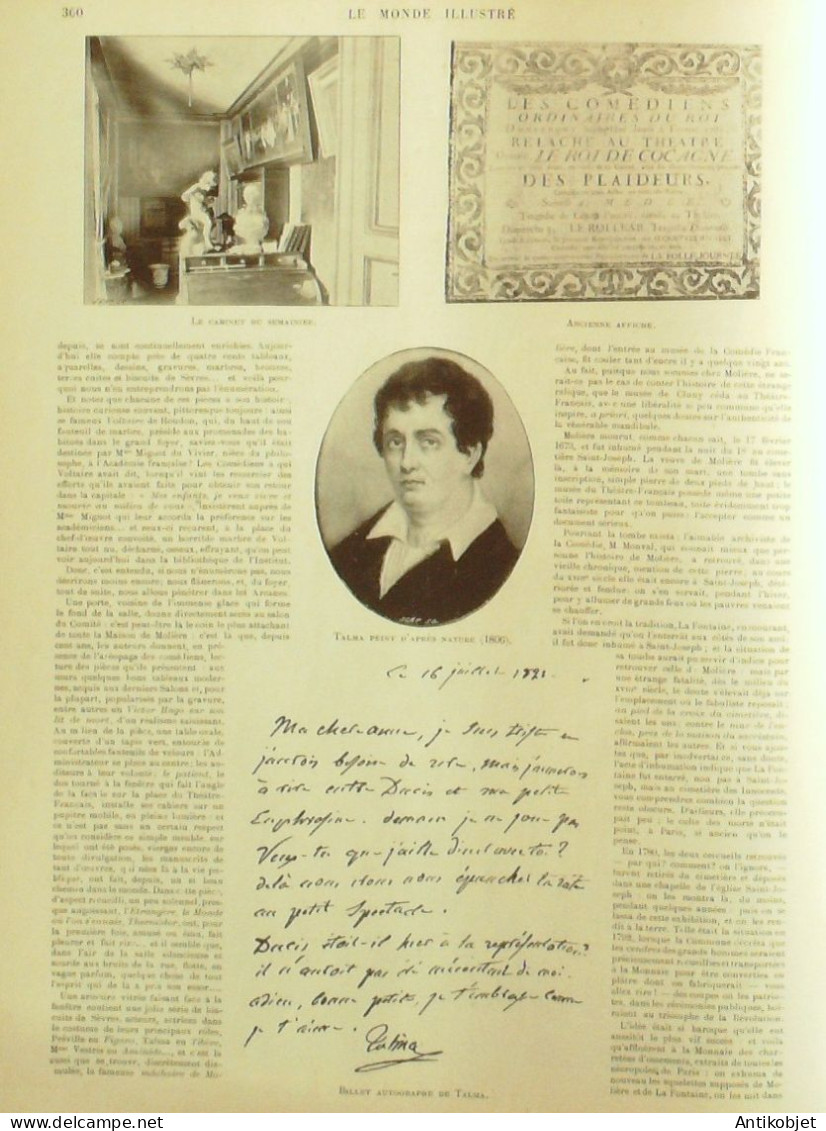 360
LE MONDE ILLUSTRÉ
LE CABINET DU SEMAINIER.
LES COMÉDIENS
ORDINAIRES DU ROI
RELACHE AU THEATRE
LE ROI DE COCAGNE
DES PLAIDEURS.
MEDÉE
LA FOLLE JOURNÉE
ANCIENNE AFFICHE.
depuis, se sont continuellement enrichies. Aujour-
d'hui elle compte près de quatre cents tableaux,
aquarelles, dessins, gravures, marbres, bronzes,
terres cuites et biscuits de Sèvres... et voilà pour-
quoi nous n'en entreprendrons pas l'énumération.
Et notez que chacune de ces pièces a son histoire;
histoire curieuse souvent, pittoresque toujours: ainsi
le fameux Voltaire de Houdon, qui, du haut de son
fauteuil de marbre, préside aux promenades des ha-
bitués dans le grand foyer, saviez-vous qu'il était
destiné par Mme Mignot du Vivier, nièce du philo-
sophe, à l'Académie française? Les Comédiens à qui
Voltaire avait dû, lorsqu'il vint les remercier des
efforts qu'ils avaient faits pour obtenir son retour
dans la capitale: « Mes enfants, je veux vivre et
mourir au milieu de vous », insistèrent auprès de
Mme Mignot qui leur accorda la préférence sur les
académiciens... et ceux-ci reçurent, à la place du
chef-d'œuvre convoité, un horrible marbre de Vol-
taire tout nu, décharné, osseux, effrayant, qu'on peut
voir aujourd'hui dans la bibliothèque de l'Institut.
Donc, c'est entendu, si nous n'énumérons pas, nous
décrirons moins encore; nous flânerons, et, du foyer,
tout de suite, nous allons pénétrer dans les Arcanes.
Une porte, voisine de l'immense glace qui forme
le fond de la salle, donne directement accès au salon
du Comité: c'est peut-être là le coin le plus attachant
de toute la Maison de Molière: c'est là que, depuis
cent ans, les auteurs donnent, en pré-
sence de l'aréopage des comédiens, lec-
ture des pièces qu'ils présentent: aux
murs quelques bons tableaux moder-
nes, acquis aux derniers Salons et, pour
la plupart, popularisés par la gravure,
entre autres un Victor Hugo sur son
lit de mort, d'un réalisme saisissant.
Au milieu de la pièce, une table ovale,
couverte d'un tapis vert, entourée de
confortables fauteuils de velours: l'Ad-
ministrateur se place au centre; les au-
diteurs à leur volonté; le patient, le
dos tourné à la fenêtre qui fait l'angle
de la façade sur la place du Théâtre-
Français, installe ses cahiers sur un
pupitre mobile, en pleine lumière: et
ce n'est pas sans un certain respect
qu'on considère ce simple meuble, sur
lequel ont été posés, vierges encore de
toute divulgation, les manuscrits de
tant d'œuvres, qui mises là à la vie pu-
blique, ont fait, depuis, un si beau
chemin dans le monde. Dans cette pièce,
d'aspect recueilli, un peu solennel, pres-
que angoissant, l'Étrangère, le Monde
où l'on s'ennuie, Thermidor, ont, pour
la première fois, amusé ou ému, fait
pleurer et fait rire... et il semble que,
dans l'air de la salle silencieuse et
sourde aux bruits de la rue, flotte, en
vague parfum, quelque chose de tout
l'esprit qui de là a pris son essor...
Une armoire vitrée faisant face à la
fenêtre contient une jolie série de bis-
cuits de Sèvres, acteurs, actrices dans
le costume de leurs principaux rôles,
Préville en Figaro, Talma en Tibère,
Mme Vestris en Aménaïde... et c'est là
aussi que se trouve, discrètement dis-
simulée, la fameuse mâchoire de Mo-
TALMA PEINT D'APRÈS NATURE (1806).
Ce 16 juillet 1821.
Ma chere amie, je suis triste et
j'aurois besoin de rire, mais j'aimerois
à rire entre Ducis et ma petite
Euphrosine. demain je ne joue pas
Veux-tu que j'aille diner avec toi?
delà nous irons nous épancher la rate
au petit Spectacle.
Ducis étoit-il hier à la représentation?
il n'auroit pas été mécontent de moi.
adieu, bonne petite, je t'embrasse comme
je t'aime.
Talma
BILLET AUTOGRAPHE DE TALMA.
lière, dont l'entrée au musée de la Comédie-Fran-
çaise, fit couler tant d'encre il y a quelque vingt ans.
Au fait, puisque nous sommes chez Molière, ne se-
rait-ce pas le cas de conter l'histoire de cette étrange
relique, que le musée de Cluny céda au Théâtre-
Français, avec une libéralité si peu commune qu'elle
inspire, a priori, quelques doutes sur l'authenticité de
la vénérable mandibule.
Molière mourut, comme chacun sait, le 17 février
1673, et fut inhumé pendant la nuit du 18 au cime-
tière Saint-Joseph. La veuve de Molière fit élever
là, à la mémoire de son mari, une tombe sans
inscription, simple pierre de deux pieds de haut; le
musée du Théâtre-Français possède même une petite
toile représentant ce tombeau, toile évidemment trop
fantaisiste pour qu'on puisse l'accepter comme un
document sérieux.
Pourtant la tombe exista: l'aimable archiviste de
la Comédie, M. Monval, qui connaît mieux que per-
sonne l'histoire de Molière, a retrouvé, dans une
vieille chronique, mention de cette pierre; au cours
du XVIIIe siècle elle était encore à Saint-Joseph, dété-
riorée et fendue: on s'en servait, pendant l'hiver,
pour y allumer de grands feux où les pauvres venaient
se chauffer.
Si l'on en croit la tradition, La Fontaine, en mourant,
avait demandé qu'on l'enterrât aux côtés de son ami,
il fut donc inhumé à Saint-Joseph; et la situation de
sa tombe aurait pu servir d'indice pour
retrouver celle de Molière: mais par
une étrange fatalité, dès le milieu du
XVIIIe siècle, le doute s'élevait déjà sur
l'emplacement où le fabuliste reposait;
au pied de la croix du cimetière, di-
saient les uns: contre le mur de l'en-
clos, près de la maison du sacristain,
affirmaient les autres. Et si vous ajou-
tez que, par inadvertance, sans doute,
l'acte d'inhumation indique que La Fon-
taine fut enterré, non pas à Saint-Jo-
seph, mais au cimetière des Innocents,
vous comprendrez combien la question
reste obscure. D'ailleurs, elle préoccu-
pait peu; le culte des morts n'était
point, à Paris, si ancien qu'on le
pense.
En 1780, les deux cercueils retrouvés
— par qui? comment? on l'ignore, —
furent retirés du cimetière et déposés
dans une chapelle de l'église Saint-Jo-
seph: on les montra là, du moins,
pendant quelques années: puis on se
lassa de cette exhibition, et on les ren-
dit à la terre. Telle était la situation en
1792, lorsque la Commune décréta que
les cendres des grands hommes seraient
précieusement recueillies et transportées
à la Monnaie pour être converties en
plâtre dont on fabriquerait — vous
allez rire! — des coupes où les patrio-
tes, dans les cérémonies publiques, boi-
raient au triomphe de la Révolution.
L'idée était si baroque qu'elle eut
aussitôt le plus vif succès: et voilà
qu'affluent à la Monnaie des char-
retées d'ossements, extraits de toutes les
nécropoles de Paris: on exhuma de
nouveau les squelettes supposés de Mo-
lière et de La Fontaine, on les mit dans
www.antikobjet.com